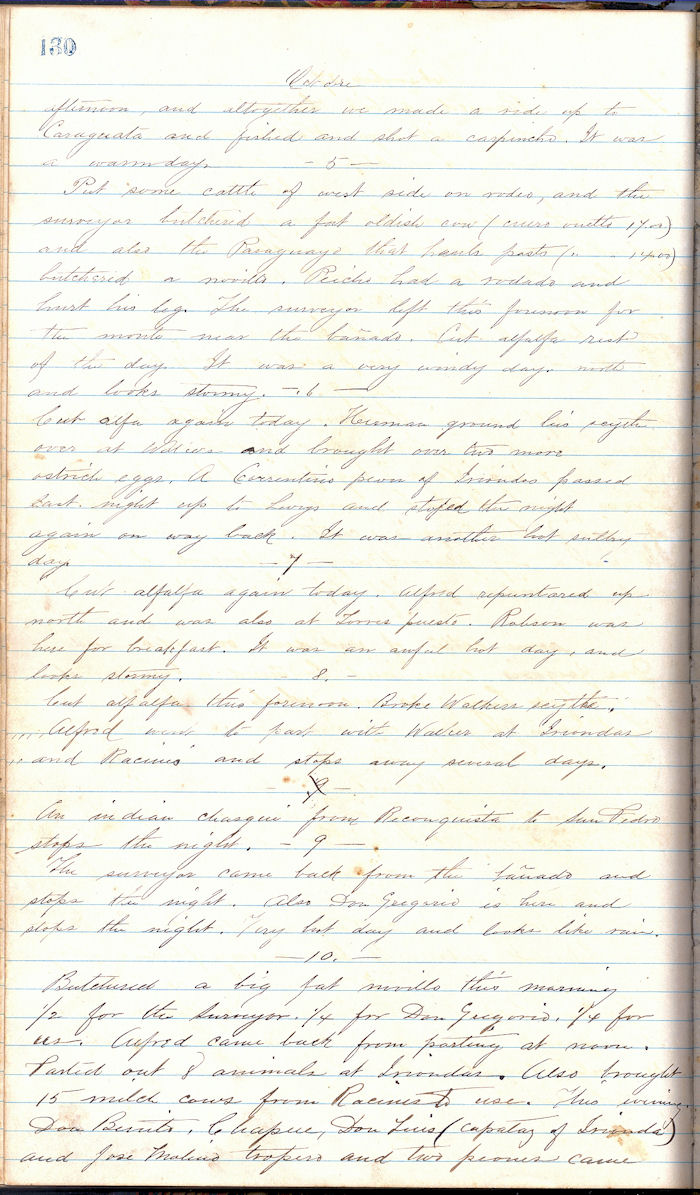 130
Octobre
afternoon, and altogether we made a ride up to
Caraguata and fished and shot a carpincho. It was
a warm day. - 5 -
Put some cattle of west side on rodeo, and the
surveyor butchered a fat oldish cow (cuero vuelto 17.00)
and also the Paraguayo that hauls posts (" " 14.00)
butchered a novillo. Peicho had a rodado and
hurt his leg. The surveyor left this forenoon for
the monte near the bañado. Cut alfalfa rest
of the day. It was a very windy day. north
and looks stormy. - 6 -
Cut alfa again today. Herman ground his scythe
over at and brought over two more
ostrich eggs. A Correntino peon of Iriondos passed
last night up to and stoped the night
again on way back. It was another hot sultry
day. - 7 -
Cut alfalfa again today. Alfred repuntared up
north and was also at Torres puesto. Robson was
here for breakfast. It was an awful hot day, and
looks stormy. - 8. -
Cut alfalfa this forenoon. Broke Walkers scythe.
Alfred went to part with Walker at Iriondas
and Racines and stops away several days.
- 9 -
An indian chasqui from Reconquista to San Pedro
stops the night. - 9 -
The surveyor came back from the bañado and
stops the night. Also Don Gregorio is here and
stops the night. Very hot day and looks like rain.
- 10. -
Butchered a big fat novillo this morning
1/2 for the surveyor. 1/4 for Don Gregorio. 1/4 for
us. Alfred came back from parting at noon.
Parted out 8 animals at Iriondas. Also brought
15 milch cows from Racines to use. This evening
Don Benito, Chapue, Don Luis (capataz of Irionda)
and Jose Molino tropero and two peones came